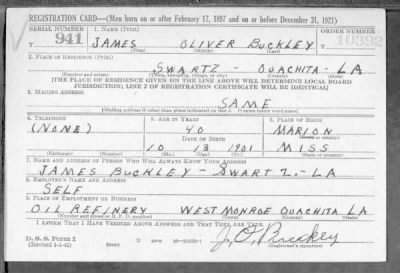 REGISTRATION CARD—(Men born on or after February 17, 1897 and on or before December 31, 1921)
SERIAL NUMBER 1. NAME (Print) ORDER NUMBER
V 941 JAMES OLIVER BUCKLEY 10392
(First) (Middle) (Last)
2. PLACE OF RESIDENCE (Print)
SWARTZ - OUACHITA - LA
(Number and street) (Town, township, village, or city) (County) (State)
[THE PLACE OF RESIDENCE GIVEN ON THE LINE ABOVE WILL DETERMINE LOCAL BOARD
JURISDICTION; LINE 2 OF REGISTRATION CERTIFICATE WILL BE IDENTICAL]
3. MAILING ADDRESS
SAME
[Mailing address if other than place indicated on line 2. If same insert word same]
4. TELEPHONE 5. AGE IN YEARS 6. PLACE OF BIRTH
(NONE) 40 MARION
DATE OF BIRTH (Town or county)
10 13 1901 MISS
(Exchange) (Number) (Mo.) (Day) (Yr.) (State or country)
7. NAME AND ADDRESS OF PERSON WHO WILL ALWAYS KNOW YOUR ADDRESS
JAMES BUCKLEY - SWARTZ - LA
8. EMPLOYER'S NAME AND ADDRESS
SELF
9. PLACE OF EMPLOYMENT OR BUSINESS
OIL REFINERY WEST MONROE OUACHITA LA
(Number and street or R. F. D. number) (Town) (County) (State)
I AFFIRM THAT I HAVE VERIFIED ABOVE ANSWERS AND THAT THEY ARE TRUE.
D. S. S. Form 1
(Revised 1-1-42) (over) 16—21630-1 J. O. Buckley